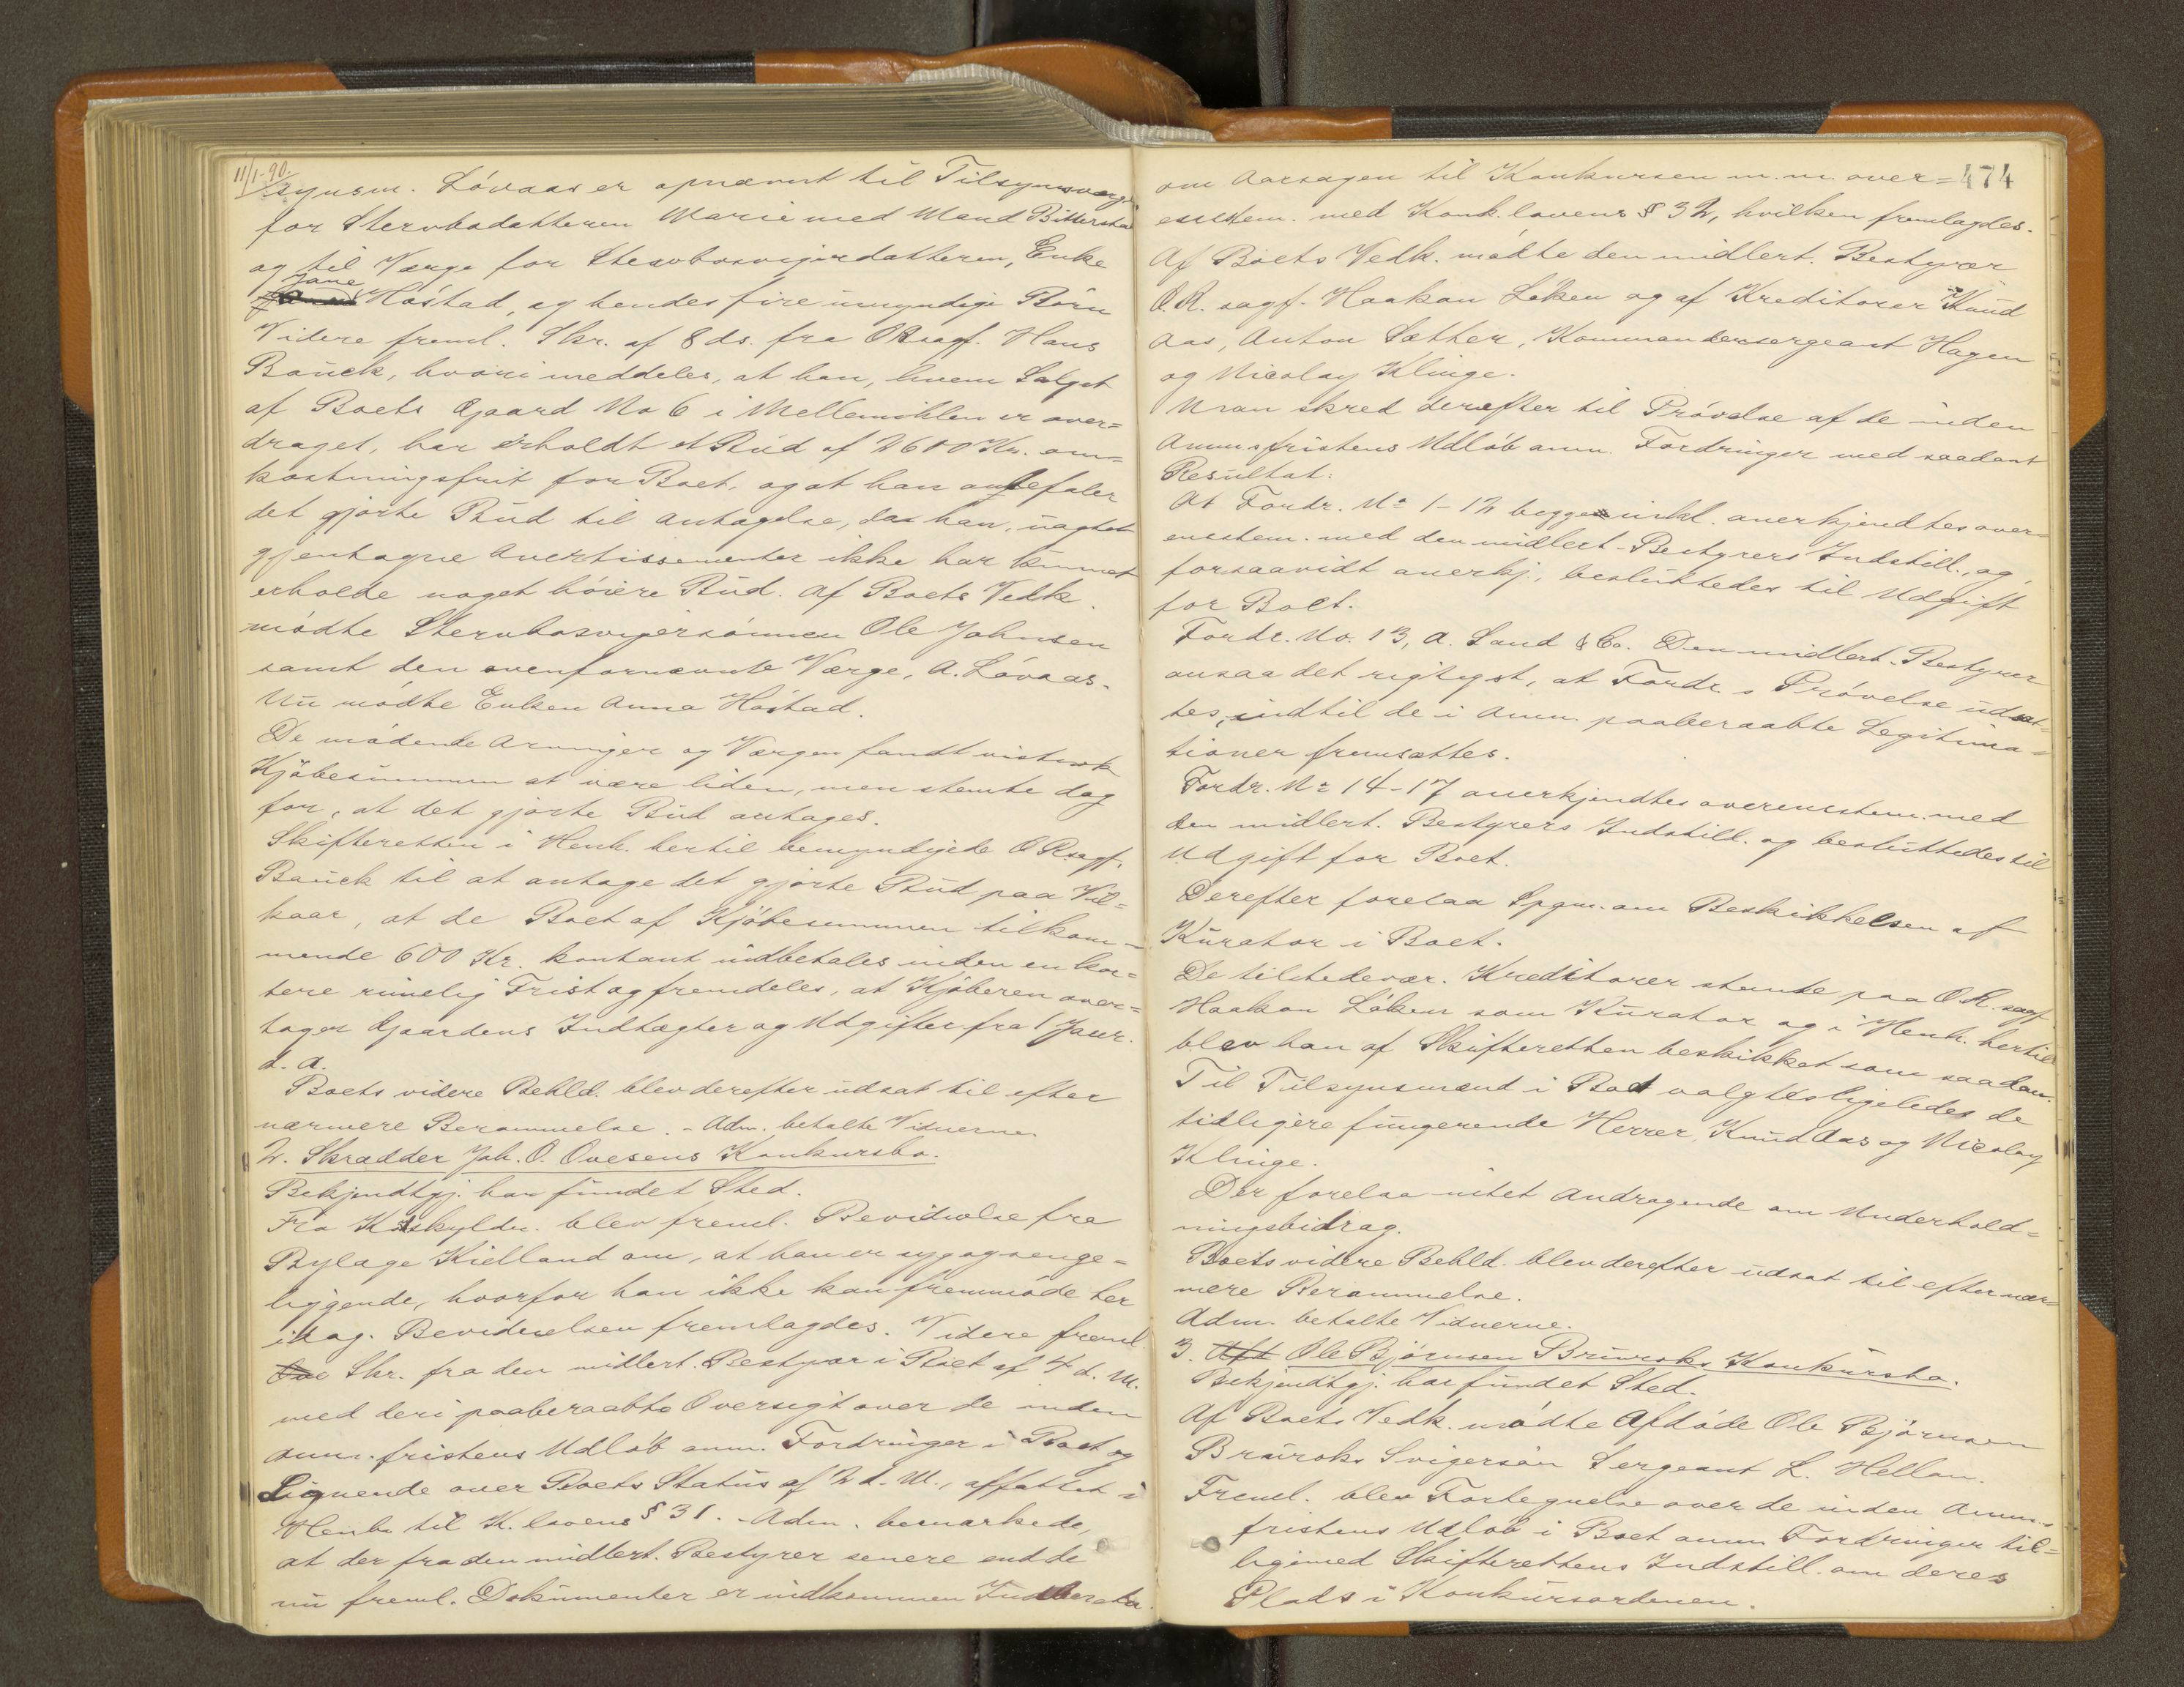 11/1-90.
synsm. Lövaas er opnævnt til Tilsynsværge
for Stervbodatteren Marie med Mand Bitterstad
og til Værge for Stervbosvigerdatteren, Enke
Jane
Höstad, og hendes fire umyndige Börn
Videre freml. Skr. af 8 ds. fra ORsagf. Hans
Bauck, hvori meddeles, at han, hvem Salget
af Boets Gaard No 6 i Mellemiklen er over=
draget, har erholdt et Bud af 2600 Kr. om=
kostningsfrit for Boet, og at han anbefaler
det gjorte Bud til Antagelse, da han, uagtet
gjentagne Avertissementer ikke har kunnet
erholde noget höiere Bud. Af Boets Vedk.
mödte Stervbosvigersönnen Ole Johnsen
samt den ovenfornævnte Værge, A. Lövaas.
Nu mödte Enken Anna Höstad.
De mödende Arvinger og Værgen fandt vistnok
Kjöbesummen at være liden, men stemte dog
for, at det gjorte Bud antages.
Skifteretten i Henh. hertil bemyndigede ORsagf.
Bauck til at antage det gjorte Bud paa Vil=
kaar, at de Boet af Kjöbesummen tilkom=
mende 600 Kr. kontant indbetales inden en kor=
tere rimelig Frist og fremdeles, at Kjöberen over=
tager Gaardens Indtægter og Udgifter fra 1 Janr.
d. A.
Boets videre Behld. blev derefter udsat til efter
nærmere Berammelse. - Adm. betalte Vidnerne
2. Skrædder Joh. O. Ovesens Konkursbo.
Bekjendtgj. har fundet Sted.
Fra K.skyldn. blev freml. Bevidnelse fra
Bylæge Kielland om, at han er syg og senge=
liggende, hvorfor han ikke kan fremmöde her
idag. Bevidnelsen fremlagdes. Videre freml.
Skr. fra den midlert. Bestyrer i Boet af 4 d. M.
med deri paaberaabte Oversigt over de inden
anm. fristens Udlöb anm. Fordringer i Boet og
Lignende over Boets Status af 2 d. M., affattet i
Henh. til K. lovens § 31. - Adm. bemærkede,
at der fra den midlert. Bestyrer senere end de
nu freml. Dokumenter er indkommen Indberetn.
474
om Aarsagen til Konkursen m. m. over=
ensstem. med Konk. lovens § 32, hvilken fremlagdes.
Af Boets Vedk. mödte den midlert. Bestyrer
O.R. sagf. Haakon Löken og af Kreditorer Knud
Aas, Anton Sæther, Kommandersergeant Hagen
og Nicolay Klinge.
Man skred derefter til Prövelse af de inden
Anmsfristens Udlöb anm. Fordringer med saadant
Resultat:
At Fordr. No 1-12 begge inkl. anerkjendtes over=
ensstem. med den midlert. Bestyrers Indstill., og,
forsaavidt anerkj., besluttedes til Udgift
for Boet.
Fordr. No. 13, A. Sand & Co. Den midlert. Bestyrer
ansaa det rigtigst, at Fordr.s Prövelse udsat=
tes, indtil de i Anm. paaberaabte Legitima=
tioner fremsattes.
Fordr. No 14-17 anerkjendtes overensstem. med
den midlert. Bestyrers Indstill. og besluttedes til
Udgift for Boet.
Derefter forelaa Spgm. om Beskikkelsen af
Kurator i Boet.
De tilstedevær. Kreditorer stemte paa O.R. sagf.
Haakon Löken som Kurator og i Henh. hertil
blev han af Skifteretten beskikket som saadan.
Til Tilsynsmænd i Boet valgtes ligeledes de
tidligere fungerende Herrer, Knud Aas og Nicolay
Klinge.
Der forelaa intet Andragende om Underhold=
ningsbidrag.
Boets videre Behld. blev derefter udsat til efter nær=
mere Berammelse.
Adm. betalte Vidnerne.
3. Afd Ole Björnsen Bruroks Konkursbo.
Bekjendtgj. har fundet Sted.
Af Boets Vedk. mödte Afdöde Ole Björnsen
Bruroks Svigersön Sergeant L. Hellan.
Freml. blev Fortegnelse over de inden Anm.=
fristens Udlöb i Boet anm. Fordringer til=
ligemed Skifterettens Indstill. om deres
Plads i Konkursordenen.